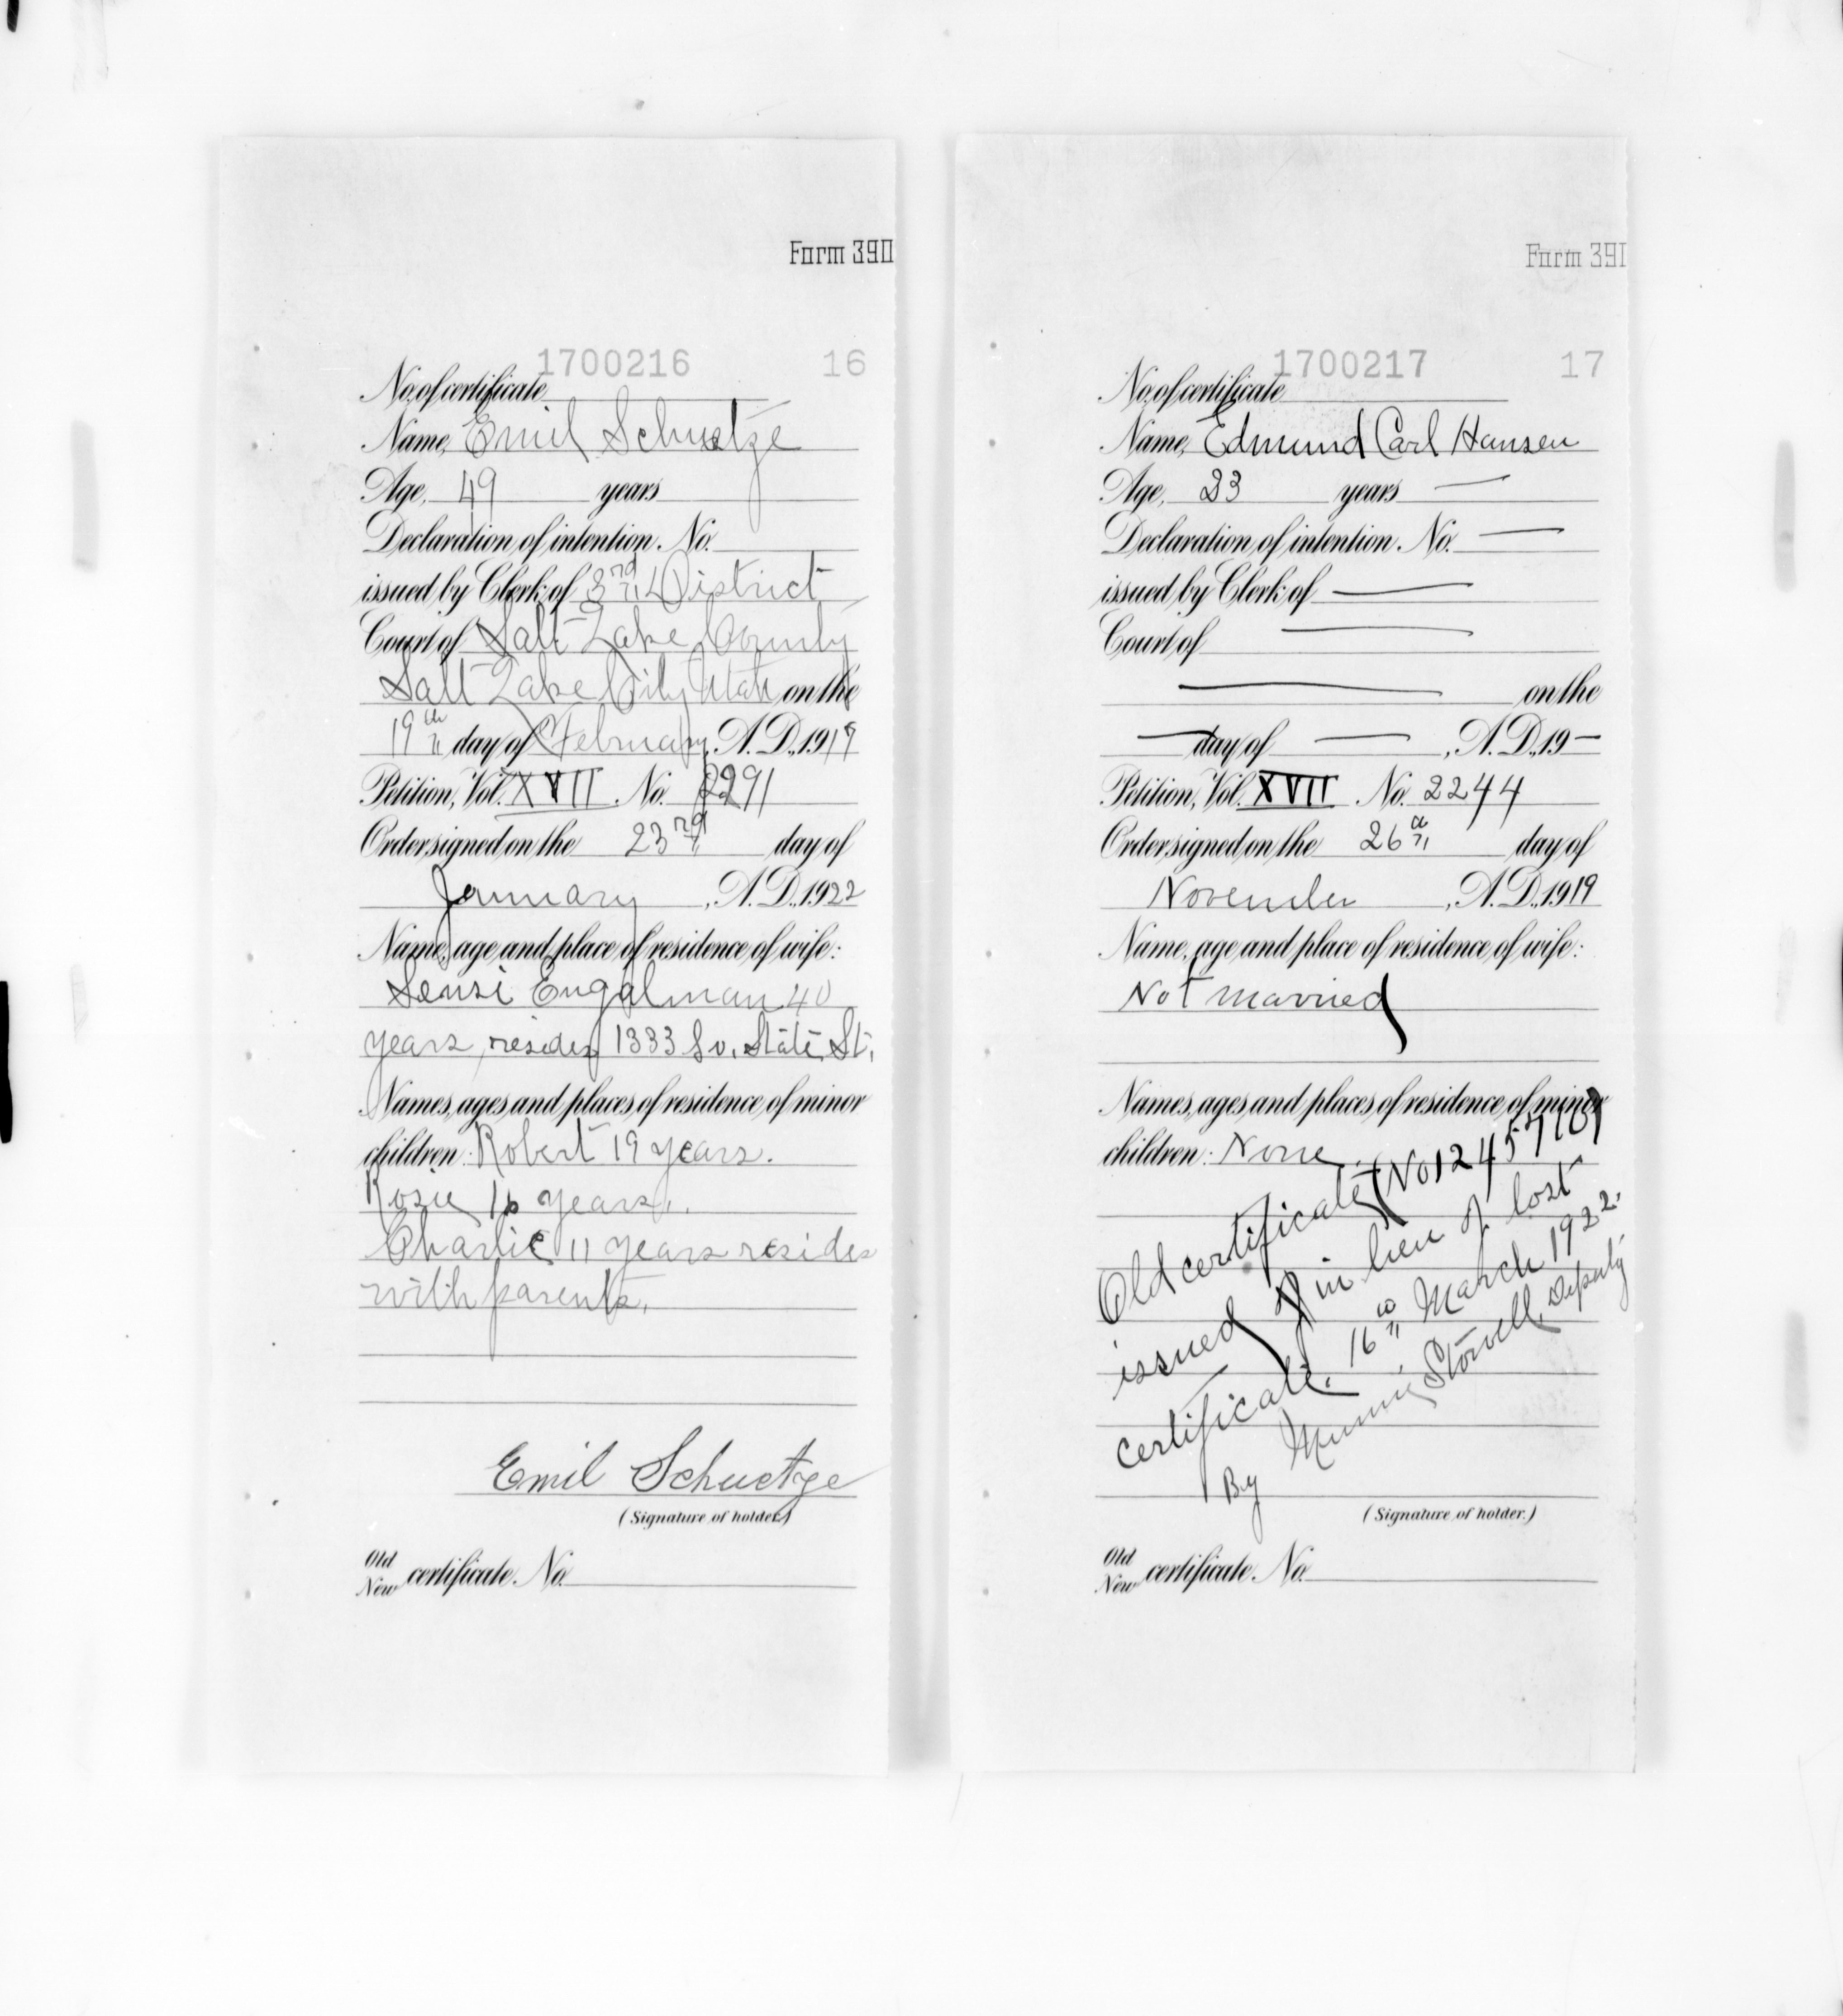 Form 390
1700216 16
No. of certificate
Name, Emil Schuetze
Age, 49 years
Declaration of intention, No.
issued by Clerk of 3rd District
Court of Salt Lake County
Salt Lake City Utah on the
19th day of February, A.D., 191
Petition, Vol. XVII No. 2291
Order signed on the 23rd day of
January, A.D., 1922
Name, age and place of residence of wife:
Engalman 40
years, resides 1333 So. State St.
Names, ages and places of residence of minor
children: Robert 19 years.
Rosie 16 years.
Charlie 11 years resides
with parents.
Emil Schuetze
(Signature of holder.)
Old
New certificate No.
Form 391
1700217 17
No. of certificate
Name, Edmund Carl Hansen
Age, 23 years —
Declaration of intention, No. —
issued by Clerk of —
Court of —
— on the
— day of —, A.D., 19—
Petition, Vol. XVII No. 2244
Order signed on the 26th day of
November, A.D., 1919
Name, age and place of residence of wife:
Not married
Names, ages and places of residence of minor
children: None.
Old certificate (No
issued in lieu of lost
certificate. 16th March 1922.
By Minnie Stowell, Deputy
(Signature of holder.)
Old
New certificate No.